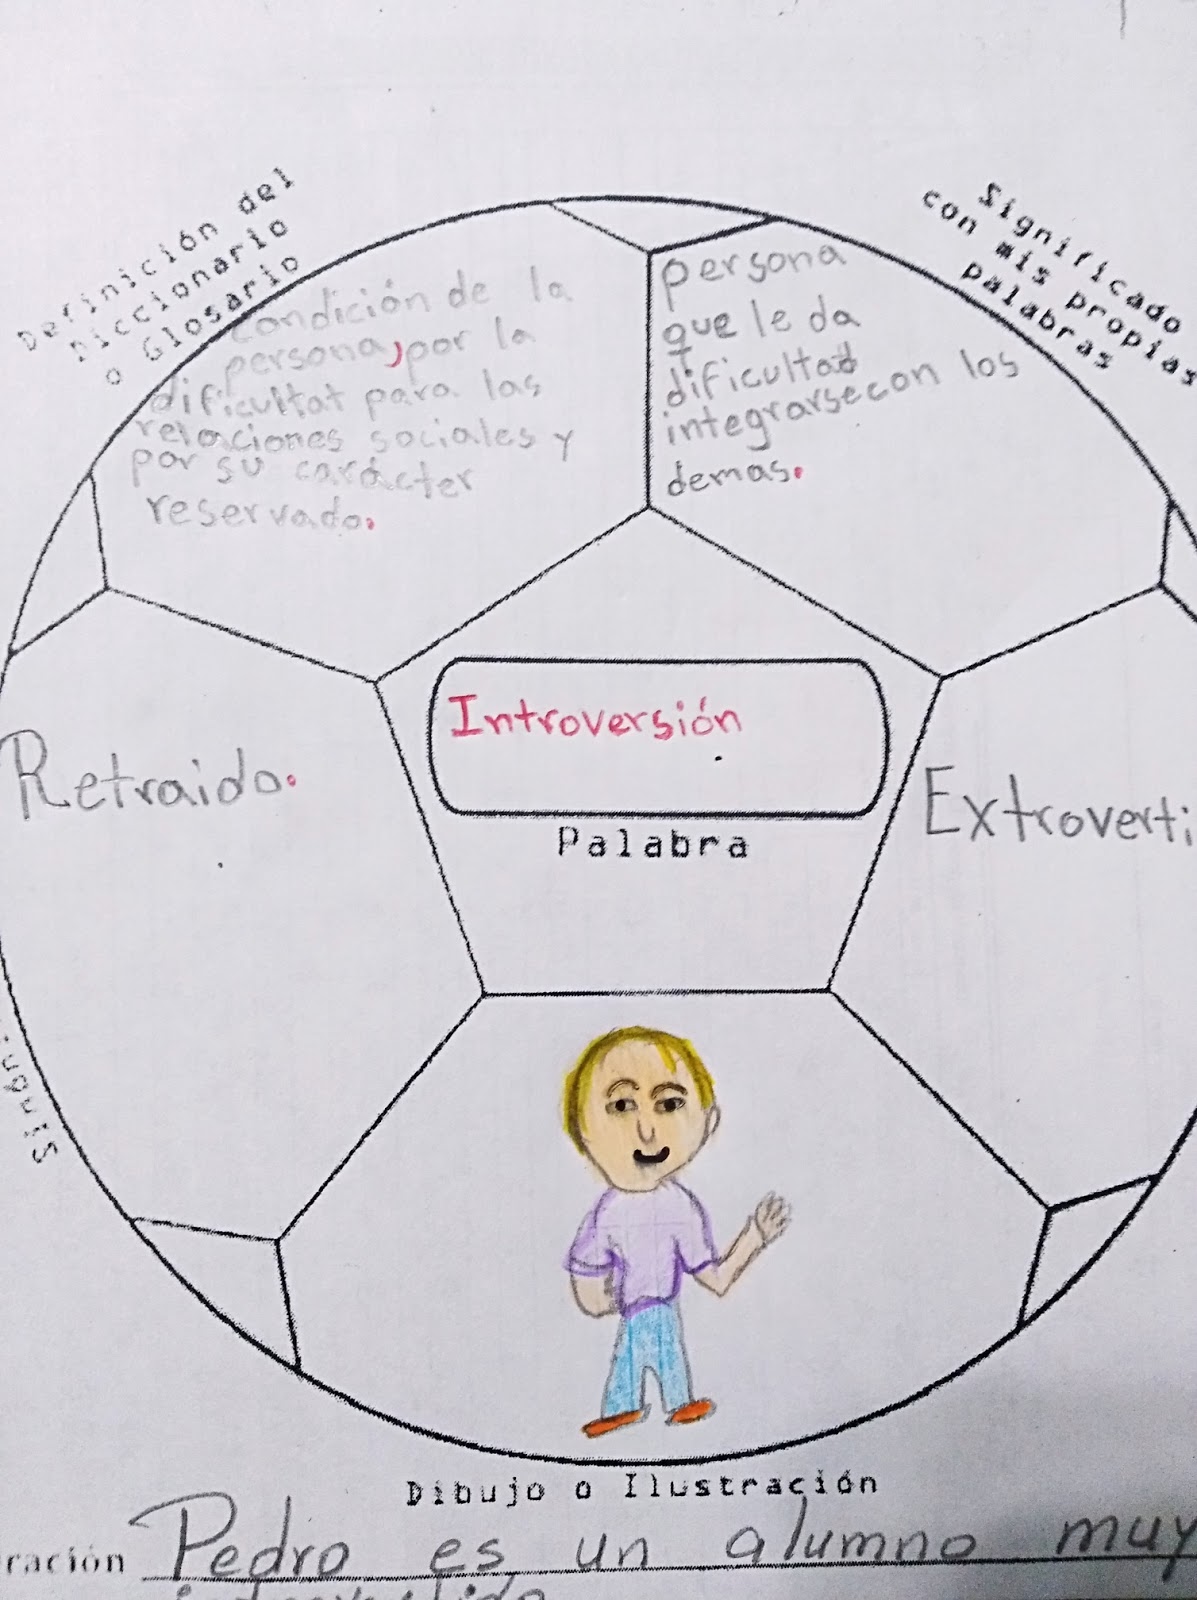 Definición del
Diccionario
o Glosario
Significado
con mis propias
palabras
condición de la
persona, por la
dificultat para las
relaciones sociales y
por su carácter
reservado.
persona
que le da
dificultad
integrarse con los
demas.
Introversión
Palabra
Retraido.
Extroverti
Sinón
Dibujo o Ilustración
ración Pedro es un alumno muy
introvertido